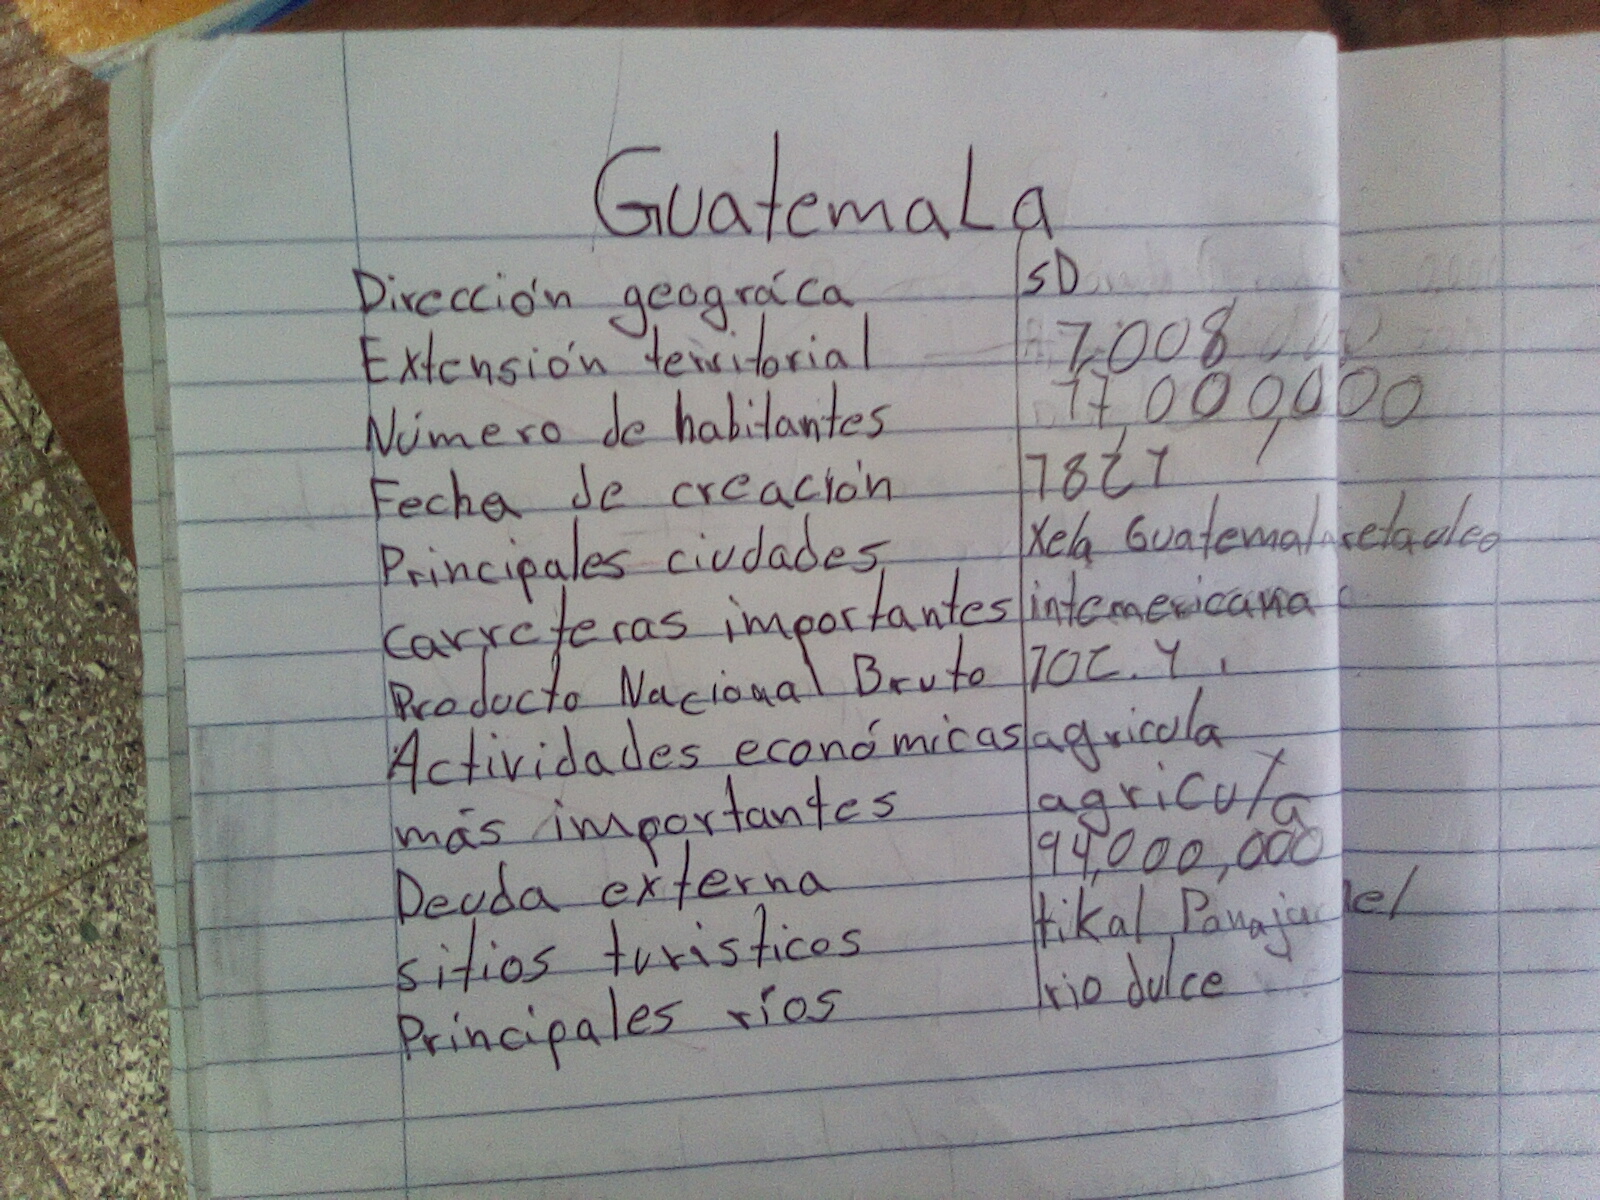 GuatemaLa
Dirección geográca sD
Extensión territorial 7,008
Número de habitantes 17,000,000
Fecha de creación
Principales ciudades Xela Guatemala
Carreteras importantes
Producto Nacional Bruto
Actividades económicas agricola
más importantes agricula
Deuda externa 94,000,000
sitios turisticos tikal Panajachel
Principales ríos rio dulce